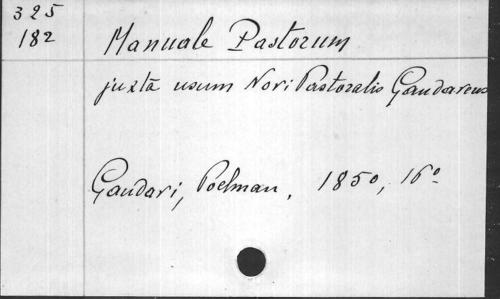 325
182
Manuale Pastorum
juxta usum Novi Pastoralis
Gandavi, Poelman, 1850, 16º